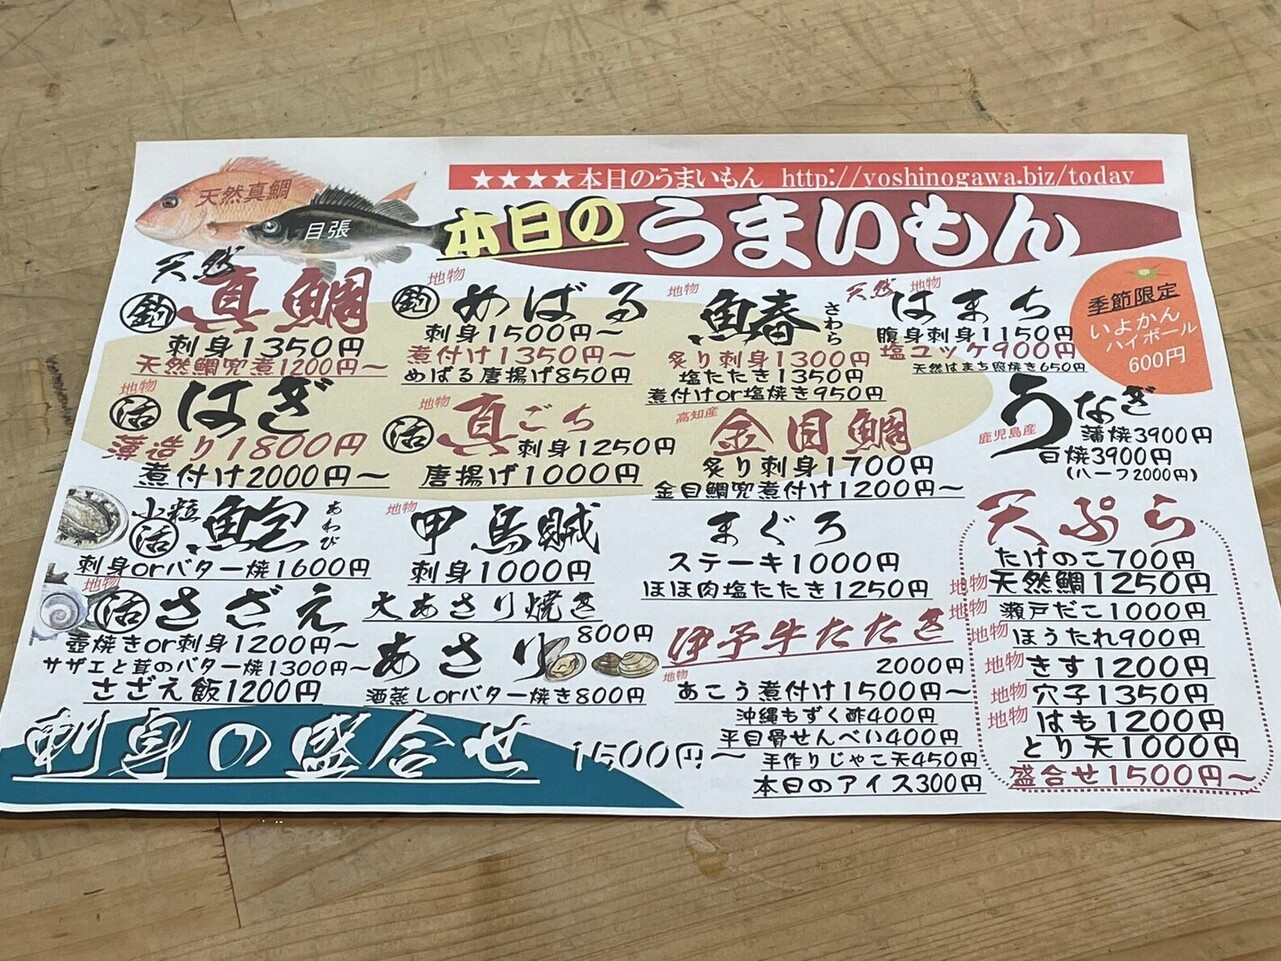 ★★★★本日のうまいもん http://yoshinogawa.biz/today
天然真鯛
目張
本日の うまいもん
天然
釣 真鯛
刺身1350円
天然鯛兜煮1200円～
地物
釣 めばる
刺身1500円～
煮付け1350円～
めばる唐揚げ850円
地物
魚春 さわら
炙り刺身1300円
塩たたき1350円
煮付けor塩焼き950円
天然 地物
はまち
腹身刺身1150円
塩ユッケ900円
天然はまち照焼き650円
季節限定
いよかん
ハイボール
600円
地物
活 はぎ
薄造り1800円
煮付け2000円～
地物
活 真ごち
刺身1250円
唐揚げ1000円
高知産
金目鯛
炙り刺身1700円
金目鯛兜煮付け1200円～
鹿児島産
うなぎ
蒲焼3900円
白焼3900円
(ハーフ2000円)
小粒
活 鮑 あわび
刺身orバター焼1600円
地物
甲烏賊
刺身1000円
まぐろ
ステーキ1000円
ほほ肉塩たたき1250円
地物
活 さざえ
壺焼きor刺身1200円～
サザエと茸のバター焼1300円～
さざえ飯1200円
大あさり焼き
800円
あさり
酒蒸しorバター焼き800円
伊予牛たたき
2000円
地物
あこう煮付け1500円～
沖縄もずく酢400円
平目骨せんべい400円
手作りじゃこ天450円
本日のアイス300円
天ぷら
たけのこ700円
地物 天然鯛1250円
地物 瀬戸だこ1000円
地物 ほうたれ900円
地物 きす1200円
地物 穴子1350円
地物 はも1200円
とり天1000円
盛合せ1500円～
刺身の盛合せ 1500円～